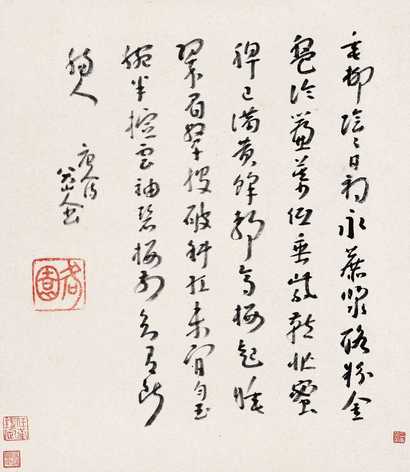 垂柳陰陰日初永蔗漿酪粉金
盤冷簾幕低垂紫燕忙蜜
脾已滿黃蜂靜高樓起睡
翠眉顰枕破斜紅未肯勻玉
腕半揎雲袖碧樓前知有斷
腸人